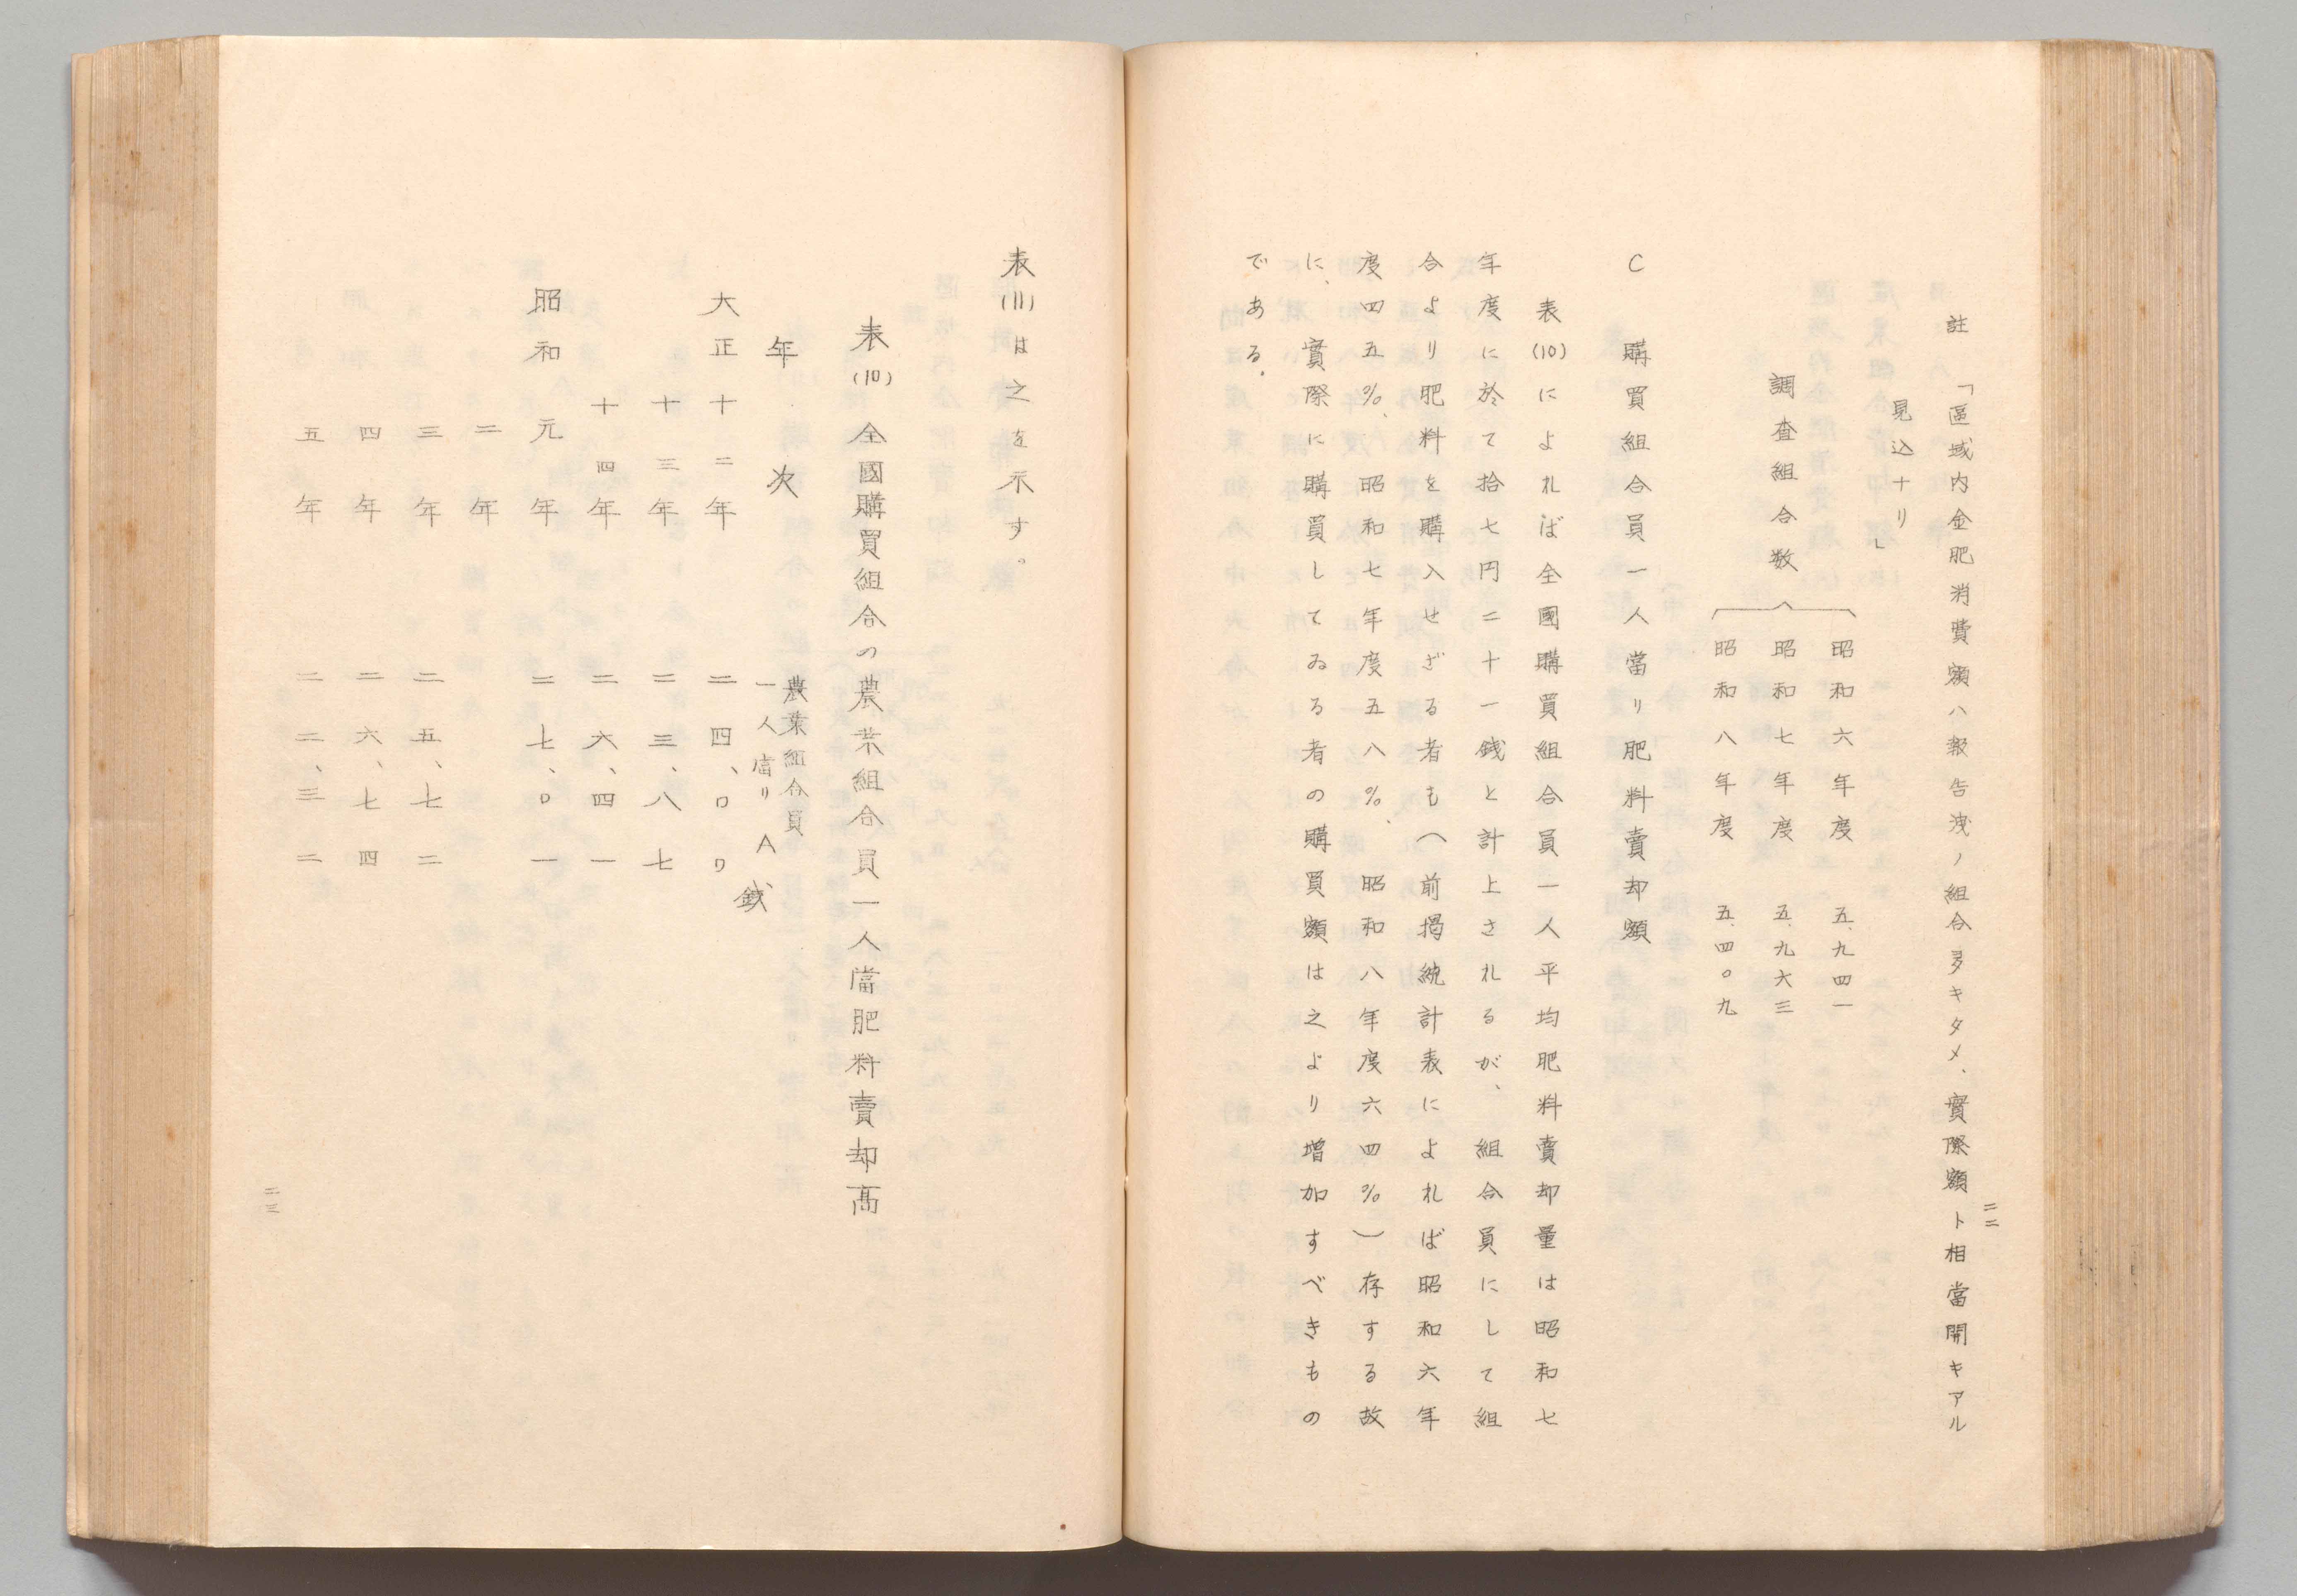 二二
註　「區域内金肥消費額ハ報告洩ノ組合多キタメ、實際額ト相當開キアル
見込ナリ」
調査組合数
昭和六年度　五、九四一
昭和七年度　五、九六三
昭和八年度　五、四〇九
C　購買組合員一人當リ肥料賣却額
表(10)によれば全國購買組合員一人平均肥料賣却量は昭和七
年度に於て拾七円二十一銭と計上されるが、組合員にして組
合より肥料を購入せざる者も（前掲統計表によれば昭和六年
度四五％、昭和七年度五八％、昭和八年度六四％）存する故
に、實際に購買してゐる者の購買額は之より増加すべきもの
である。
表(11)は之を示す。
表(10)　全國購買組合の農業組合員一人當肥料賣却高
年次　農業組合員
一人當リ　A
大正十二年　二四、〇〇
十三年　二三、八七
十四年　二六、四一
昭和元年　二七、〇一
二年
三年　二五、七二
四年　二六、七四
五年　二二、三二
二三